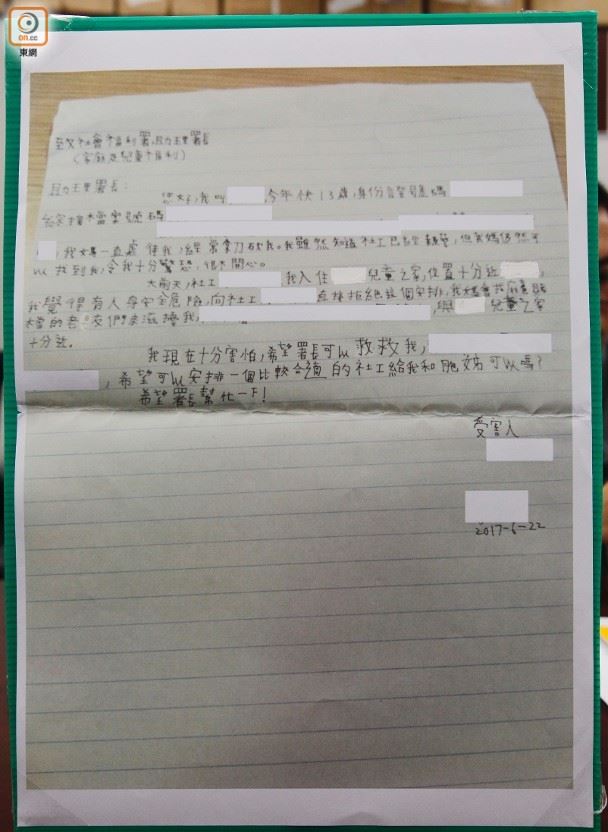 on.cc
東網
致社會福利署助理署長
(家庭及兒童福利)
助理署長:
您好,我叫 ,今年快13歲,身份証號碼
,我媽一直虐待我,經常拿刀 我。我雖然知道社工已經 ,但我媽仍然可
以找到我,令我十分驚恐,很不開心。
大前天,社工 我入住 兒童之家,位置十分近 ,
我覺得有人身安全危險,向社工 直接拒絕這個安排,我媽會找麻雀館
檔的老 們來滋擾我, ,與 兒童之家
十分近。
我現在十分害怕,希望署長可以救救我,
,希望可以安排一個比較合適的社工給我和胞 可以嗎?
希望署長幫忙一下!
受害人
2017-6-22